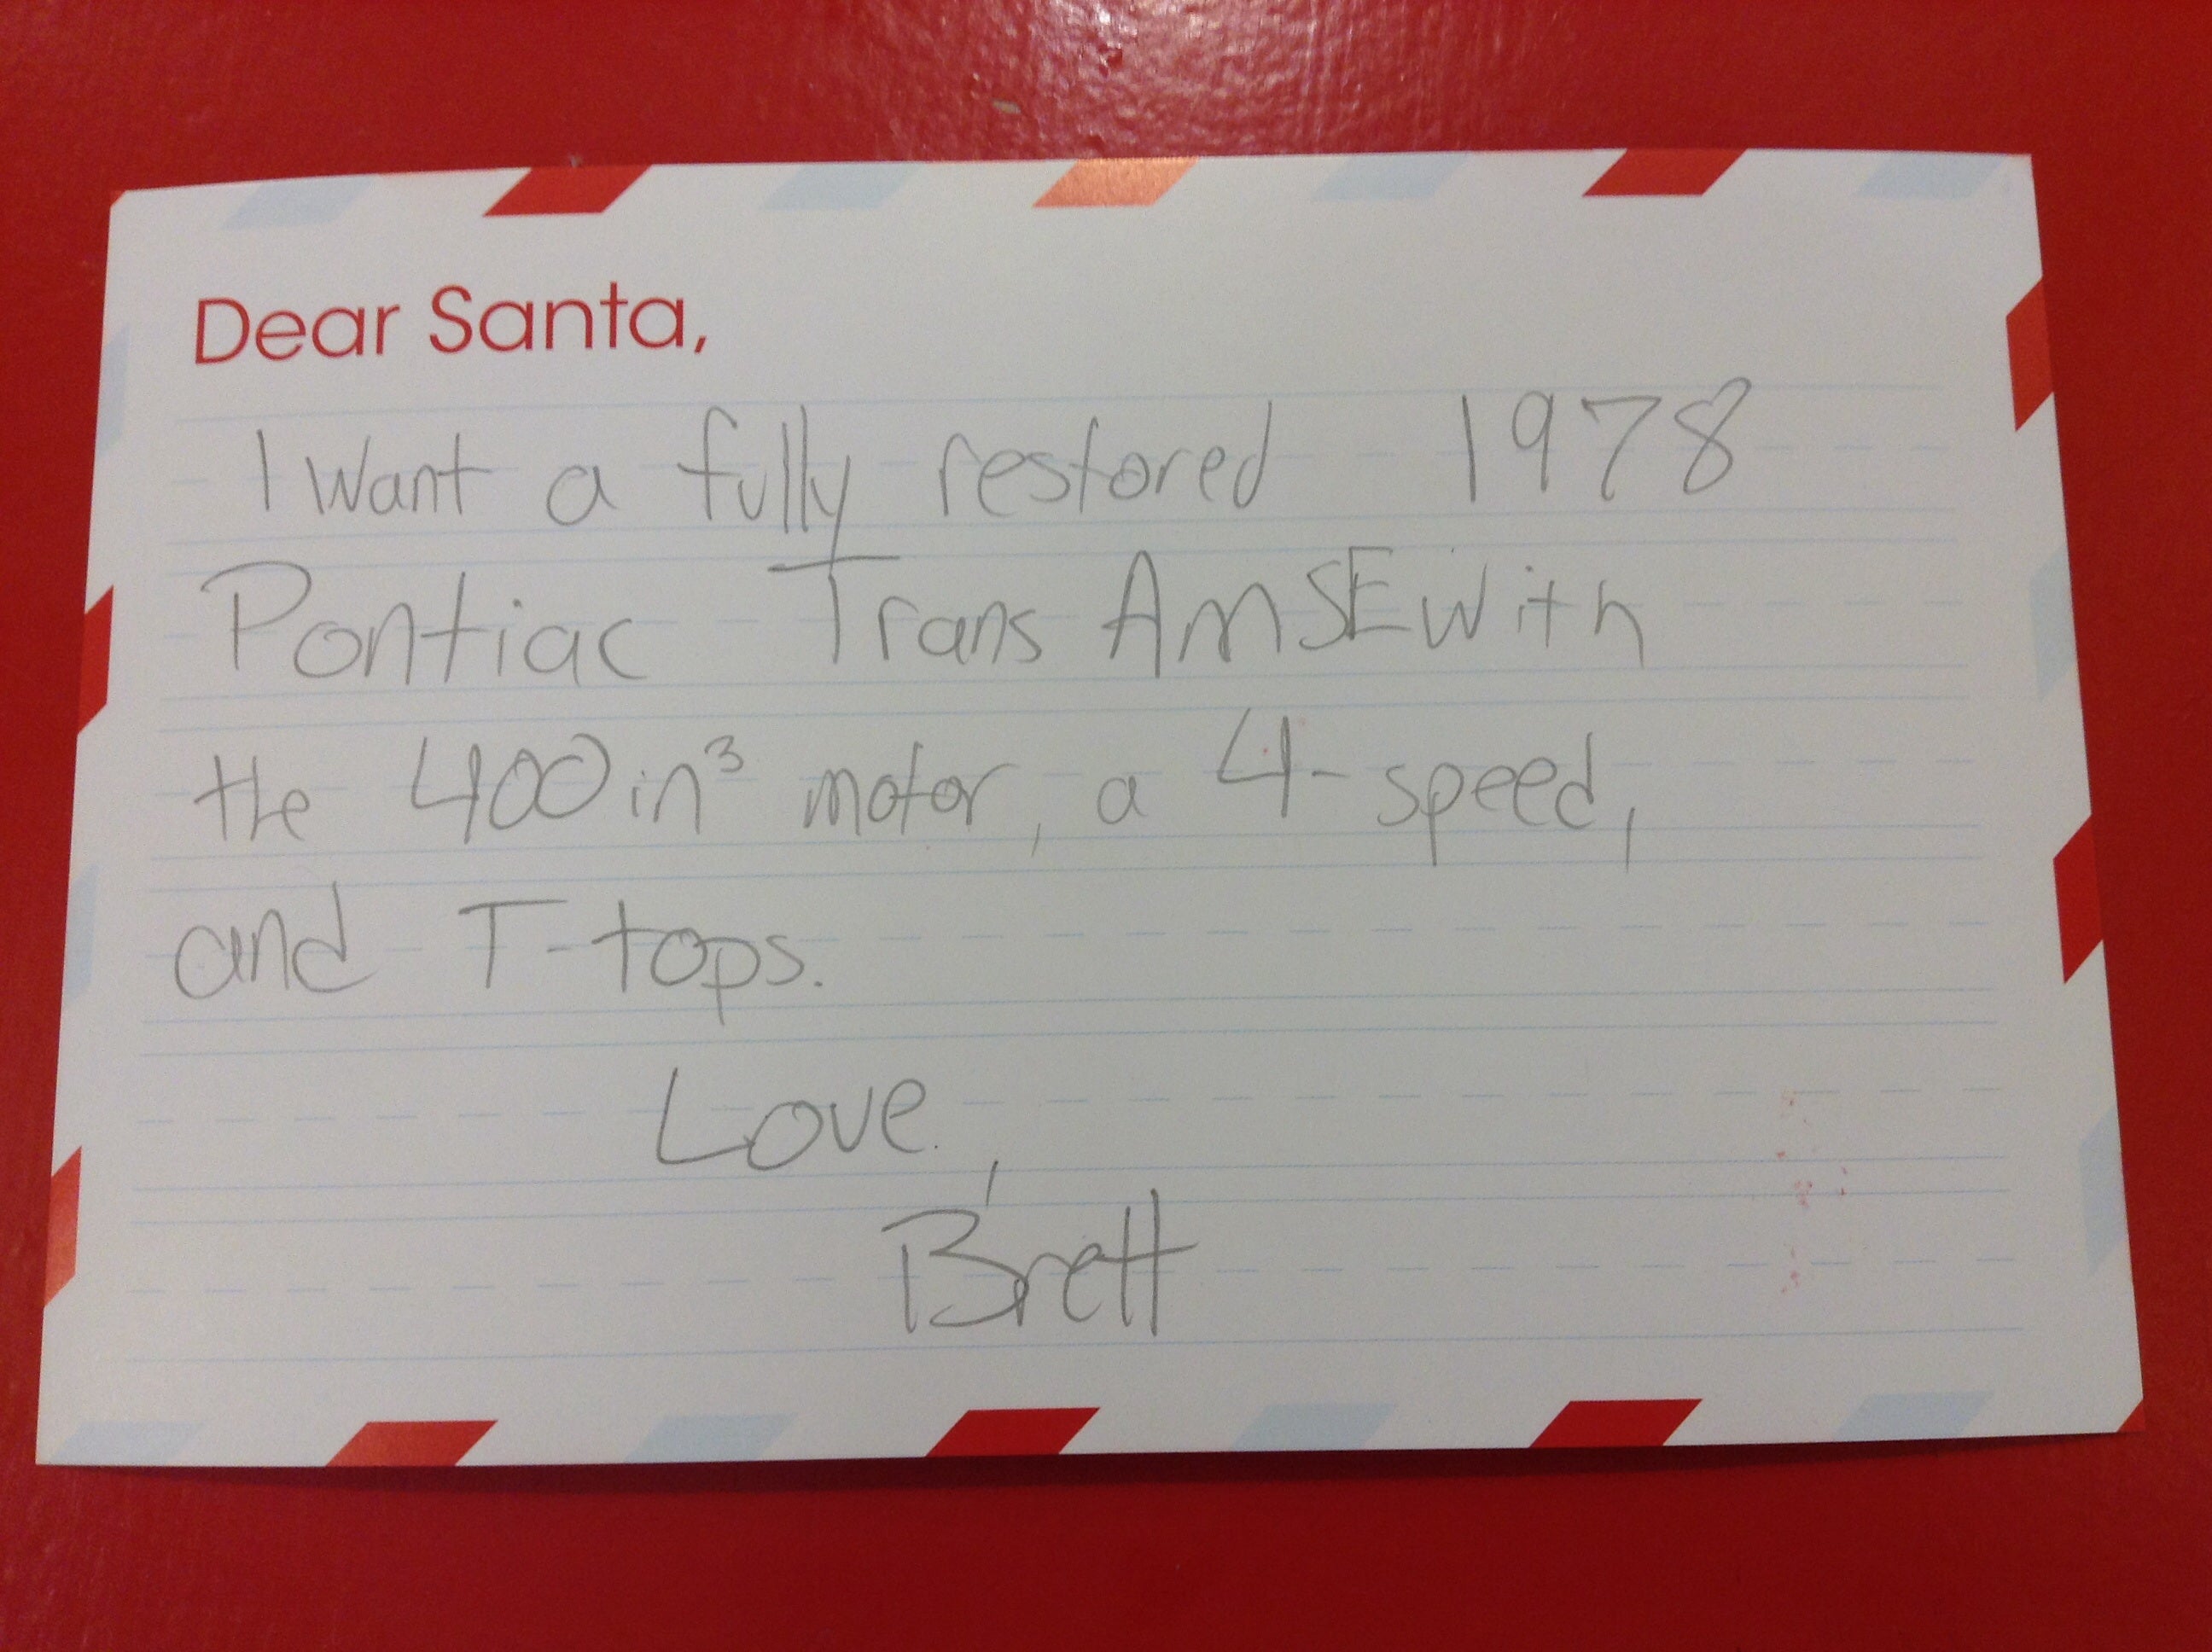 Dear Santa,
I want a fully restored 1978
Pontiac Trans Am SE with
the 400 in³ motor, a 4-speed,
and T-tops.
Love,
Brett